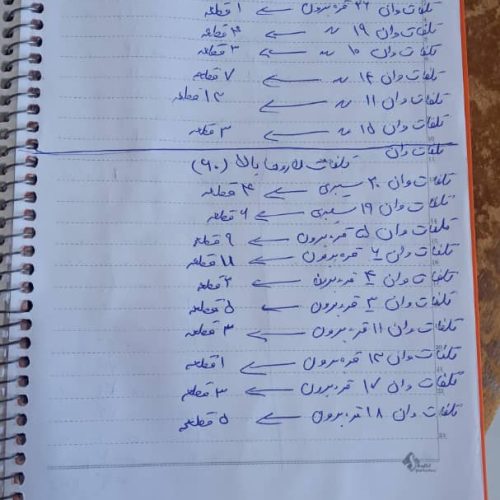 تلفات وان ۲۶ قزل برون ← ۱ قطعه
تلفات وان ۱۹ ← ۴ قطعه
تلفات وان ۱۰ ← ۳ قطعه
تلفات وان ۱۴ ← ۷ قطعه
تلفات وان ۱۱ ← ۱۳ قطعه
تلفات وان ۱۵ ← ۳ قطعه
تلفات وان
تلفات بالا (۶۰)
تلفات وان ۲۰ سیبری ← ۴ قطعه
تلفات وان ۱۹ سیبری ← ۶ قطعه
تلفات وان ۵ قره برون ← ۹ قطعه
تلفات وان ۶ قره برون ← ۱۱ قطعه
تلفات وان ۴ قره برون ← ۲ قطعه
تلفات وان ۳ قره برون ← ۵ قطعه
تلفات وان ۱۱ قره برون ← ۳ قطعه
تلفات وان ۱۳ قره برون ← ۱ قطعه
تلفات وان ۱۷ قره برون ← ۳ قطعه
تلفات وان ۱۸ قره برون ← ۵ قطعه